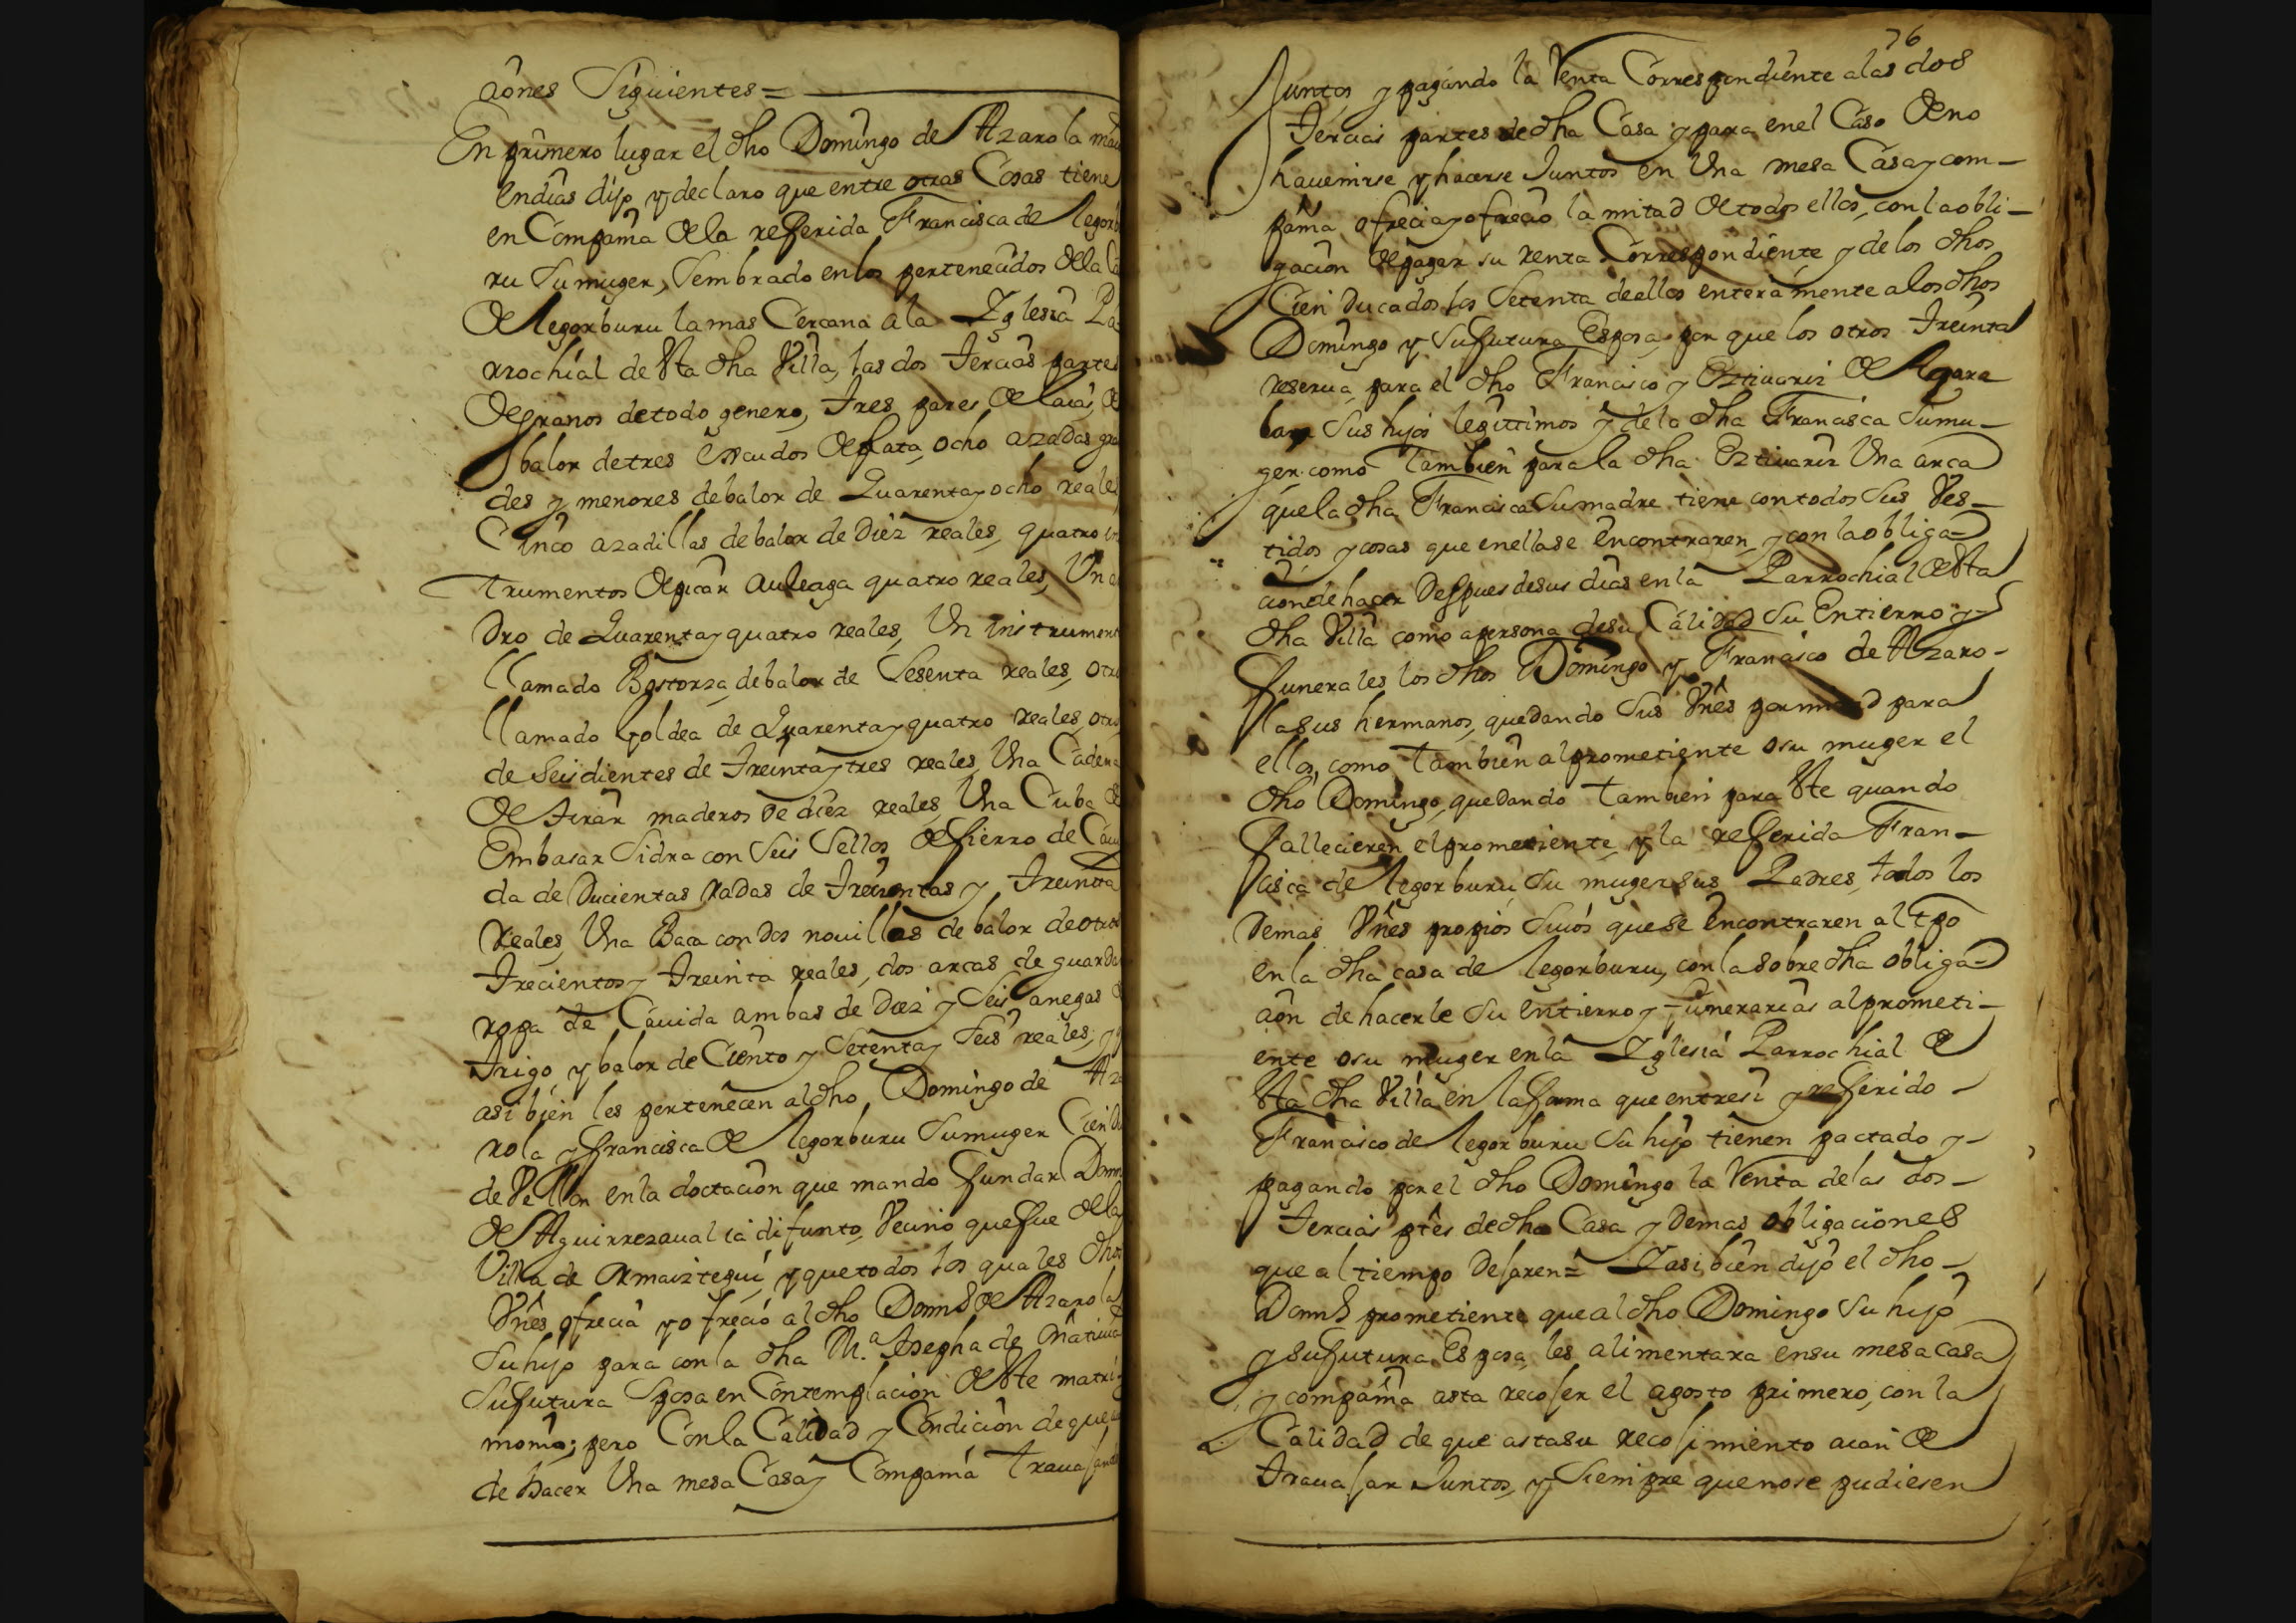 aônes Siguientes =
En primero lugar el dho Domingo de Azarola
en dias dijo y declaro que entre otras Cosas tiene
en Compañia de la referida Francisca de legor
ru Su muger, Sembrado en los pertenecidos de la
de legorburu la mas Cercana a la Yglesia Pa
rrochial de esta dha Villa, las dos Tercias partes
de granos de todo genero, Tres pares de laias, de
balor de tres escudos de plata, ocho azadas gra
des y menores de balor de Quarenta y ocho reales
Cinco azadillas de balor de Diez reales, quatro ins
trumentos de picar auleaga quatro reales, Un a
dro de Quarenta y quatro reales, Un instrument
llamado Bostorza, de balor de Sesenta reales, otro
llamado Goldea de Quarenta y quatro reales, otro
de Seis dientes de Treinta y tres reales, Una Cadena
de tirar maderos de diez reales, Una Cuba de
Embasar Sidra con Seis Sellos de fierro de Cavi
da de Ducientas Radas de Trecientas y Treinta
Reales, Una Baca con dos novillos de balor de otros
Trecientos y Treinta reales, dos arcas de guardar
ropa de Cavida ambas de Diez y Seis anegas de
Trigo y balor de Ciento y Setenta y Seis reales, y
asi bien les pertenecen al dho Domingo de Aza
rola y francisca de legorburu Su muger Cien Du
de Vellon en la doctacion que mando fundar Domn
de Aguirrezavalia difunto, Vecino que fue de la
Villa de Ormaiztegui, y que todos los quales dhos
Vnês ofrecia y ofrecio al dho Domº de Azarola
Su hijo para con la dha M.ª Josepha de Matiuа
Su futura Sposa en Contemplacion de este matri
monio; pero Con la Calidad y Condicion de que
de hacer Una mesa Casa y Compañia Travajando
76
Juntos y pagando la Renta Correspondiente a las dos
Tercias partes de dha Casa y para en el Caso de no
havenirse y hacerse Juntos en Una mesa Casa y com-
pañia ofrecia y ofrecio la mitad de todos ellos, con la obli-
gacion de pagar su renta Correspondiente y de los dhos
Cien Ducados los Setenta de ellos enteramente a los dhos
Domingo y Su futura Esposa, por que los otros Treinta
reserva para el dho Francisco y Eztivariz de Azaro
la Sus hijos legittimos y de la dha Francisca Su mu-
ger como tambien para la dha Eztivariz Una arca
que la dha Francisca Su madre tiene con todos Sus Ves-
tidos y cosas que en ella se encontraren, y con la obliga-
cion de hacer Despues de sus dias en la Parrochial de esta
dha Villa como a persona de su Calidad Su Entierro y
funerales los dhos Domingo y Francisco de Azaro-
la sus hermanos, quedando Sus Vnês por mitad para
ellos, como tambien al prometiente o su muger el
dho Domingo, quedando tambien para este quando
fallecieren el prometiente y la referida Fran-
cisca de legorburu Su muger sus Padres, todos los
demas Vnês propios Suios que se encontraren al tpo
en la dha casa de legorburu, con la sobre dha obliga-
aôn de hacerle Su entierro y funerarias al prometi-
ente o su muger en la Yglesia Parrochial de
esta dha Villa en la forma que entre si y referido
Francisco de legorburu Su hijo tienen pactado y
pagando por el dho Domingo la Renta de las dos
Tercias ptês de dha Casa y Demas obligaciones
que al tiempo Dejaren = Y asi bien dijo el dho
Domº prometiente que al dho Domingo Su hijo
y su futura Esposa, les alimentara en su mesa casa
y compañia asta recojer el agosto primero, con la
Calidad de que asta su recojimiento aian de
Travajar Juntos, y Siempre que no se pudiesen